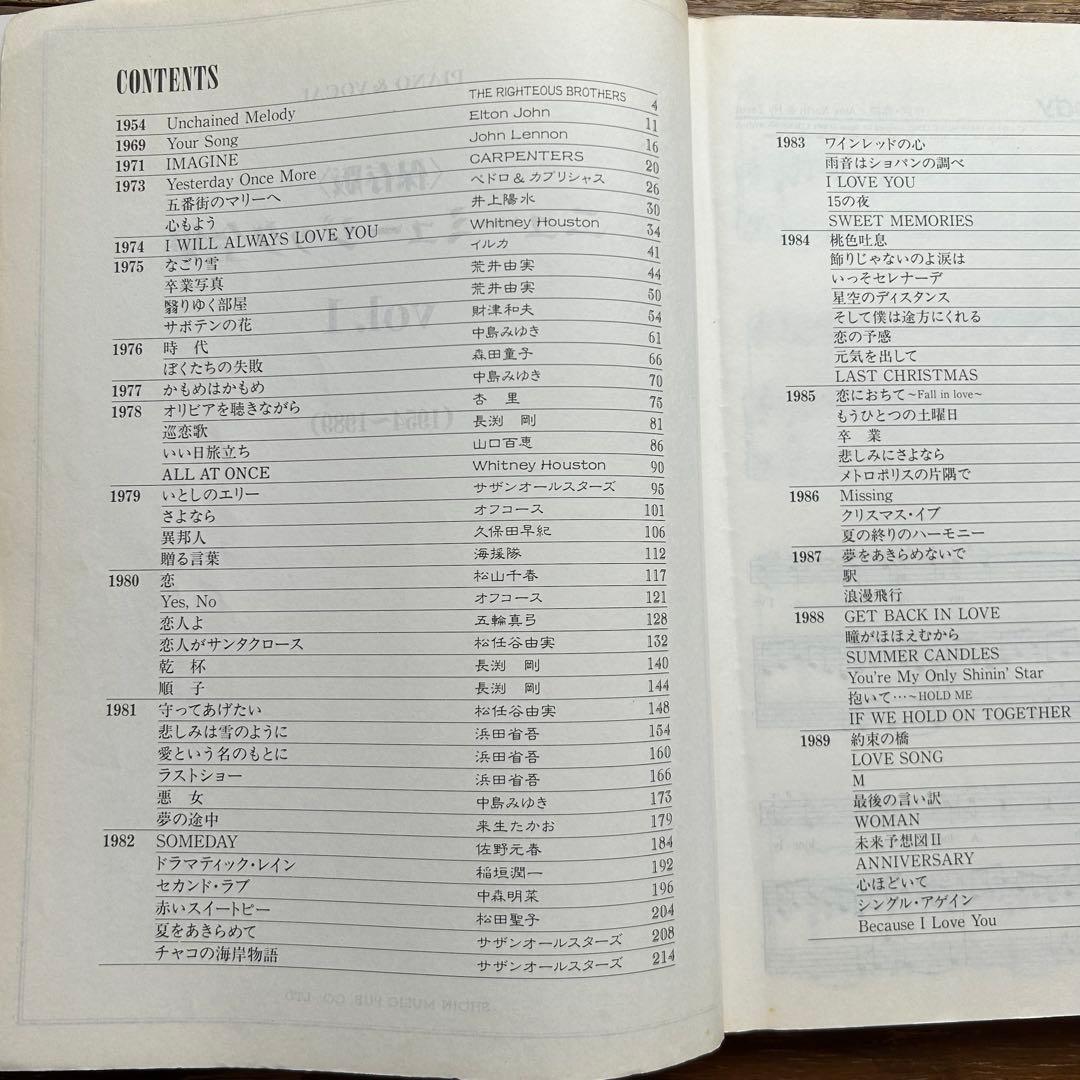 CONTENTS
1954 Unchained Melody THE RIGHTEOUS BROTHERS 4
1969 Your Song Elton John 11
1971 IMAGINE John Lennon 16
1973 Yesterday Once More CARPENTERS 20
五番街のマリーへ ペドロ&カプリシャス 26
心もよう 井上陽水 30
1974 I WILL ALWAYS LOVE YOU Whitney Houston 34
1975 なごり雪 イルカ 41
卒業写真 荒井由実 44
翳りゆく部屋 荒井由実 50
サボテンの花 財津和夫 54
1976 時 代 中島みゆき 61
ぼくたちの失敗 森田童子 66
1977 かもめはかもめ 中島みゆき 70
1978 オリビアを聴きながら 杏 里 75
巡恋歌 長渕 剛 81
いい日旅立ち 山口百恵 86
ALL AT ONCE Whitney Houston 90
1979 いとしのエリー サザンオールスターズ 95
さよなら オフコース 101
異邦人 久保田早紀 106
贈る言葉 海援隊 112
1980 恋 松山千春 117
Yes, No オフコース 121
恋人よ 五輪真弓 128
恋人がサンタクロース 松任谷由実 132
乾 杯 長渕 剛 140
順 子 長渕 剛 144
1981 守ってあげたい 松任谷由実 148
悲しみは雪のように 浜田省吾 154
愛という名のもとに 浜田省吾 160
ラストショー 浜田省吾 166
悪 女 中島みゆき 173
夢の途中 来生たかお 179
1982 SOMEDAY 佐野元春 184
ドラマティック・レイン 稲垣潤一 192
セカンド・ラブ 中森明菜 196
赤いスイートピー 松田聖子 204
夏をあきらめて サザンオールスターズ 208
チャコの海岸物語 サザンオールスターズ 214
1983 ワインレッドの心
雨音はショパンの調べ
I LOVE YOU
15の夜
SWEET MEMORIES
1984 桃色吐息
飾りじゃないのよ涙は
いっそセレナーデ
星空のディスタンス
そして僕は途方にくれる
恋の予感
元気を出して
LAST CHRISTMAS
1985 恋におちて〜Fall in love〜
もうひとつの土曜日
卒 業
悲しみにさよなら
メトロポリスの片隅で
1986 Missing
クリスマス・イブ
夏の終りのハーモニー
1987 夢をあきらめないで
駅
浪漫飛行
1988 GET BACK IN LOVE
瞳がほほえむから
SUMMER CANDLES
You're My Only Shinin' Star
抱いて…〜HOLD ME
IF WE HOLD ON TOGETHER
1989 約束の橋
LOVE SONG
M
最後の言い訳
WOMAN
未来予想図II
ANNIVERSARY
心ほどいて
シングル・アゲイン
Because I Love You